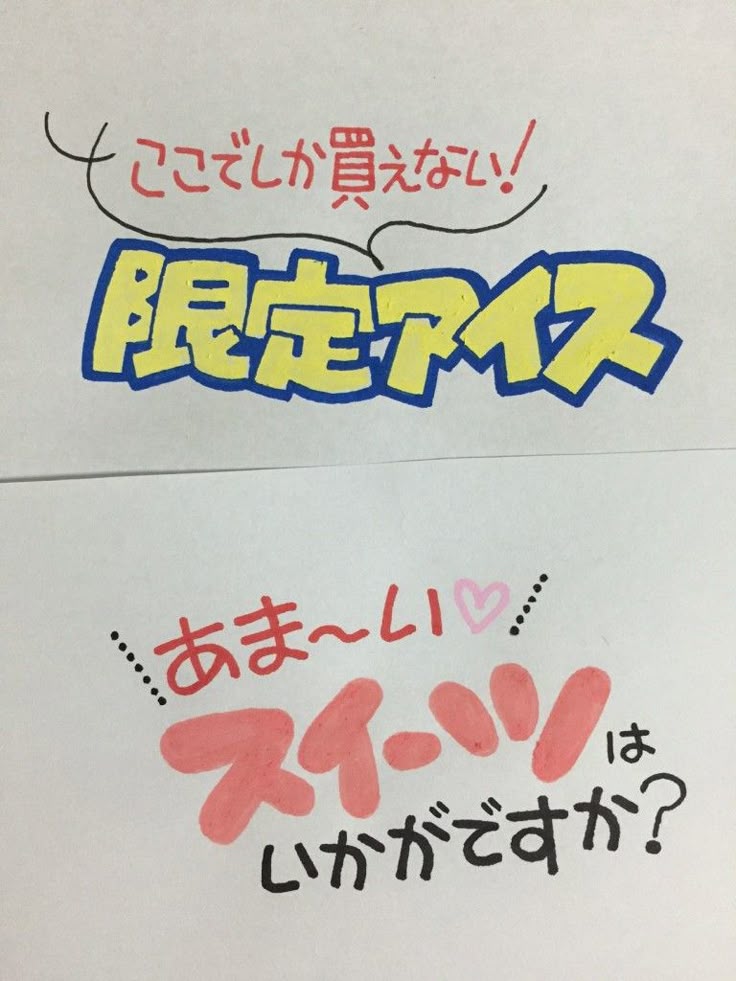 ここでしか買えない!
限定アイス
あま〜い♡
スイーツは
いかがですか?